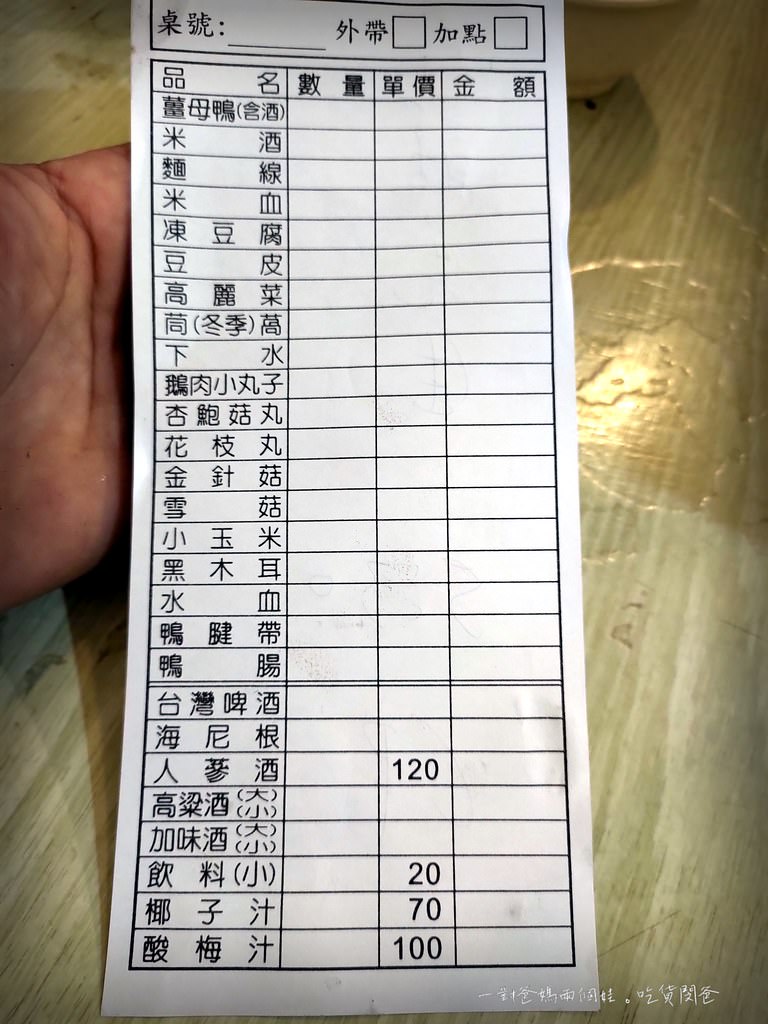 桌號: ______ 外帶□ 加點□
品名 數量 單價 金額
薑母鴨(含酒)
米酒
麵線
米血
凍豆腐
豆皮
高麗菜
茼(冬季)蒿
下水
鵝肉小丸子
杏鮑菇丸
花枝丸
金針菇
雪菇
小玉米
黑木耳
水血
鴨腱帶
鴨腸
台灣啤酒
海尼根
人蔘酒 120
高粱酒(大)(小)
加味酒(大)(小)
飲料(小) 20
椰子汁 70
酸梅汁 100
一對爸媽兩個娃。吃貨閔爸